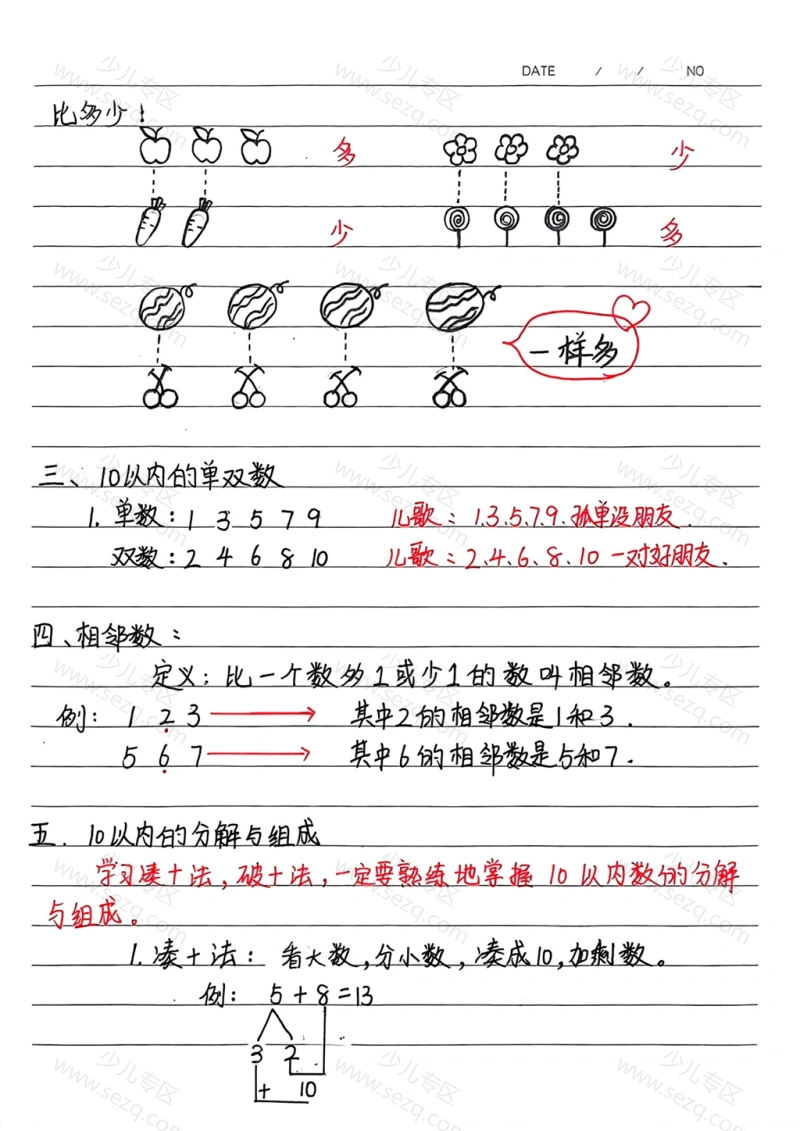 DATE / / NO
比多少!
多 少
少 多
一样多
三、10以内的单双数
1. 单数:1 3 5 7 9 儿歌:1.3.5.7.9.孤单没朋友.
双数:2 4 6 8 10 儿歌:2、4、6、8、10 一对好朋友.
四、相邻数:
定义:比一个数多1或少1的数叫相邻数。
例: 1 2 3 其中2的相邻数是1和3.
5 6 7 其中6的相邻数是5和7.
五. 10以内的分解与组成
学习凑十法,破十法,一定要熟练地掌握 10 以内数的分解
与组成。
1. 凑十法: 看大数,分小数,凑成10,加剩数。
例: 5+8=13
3 2
+ 10
少儿专区
www.sezq.com